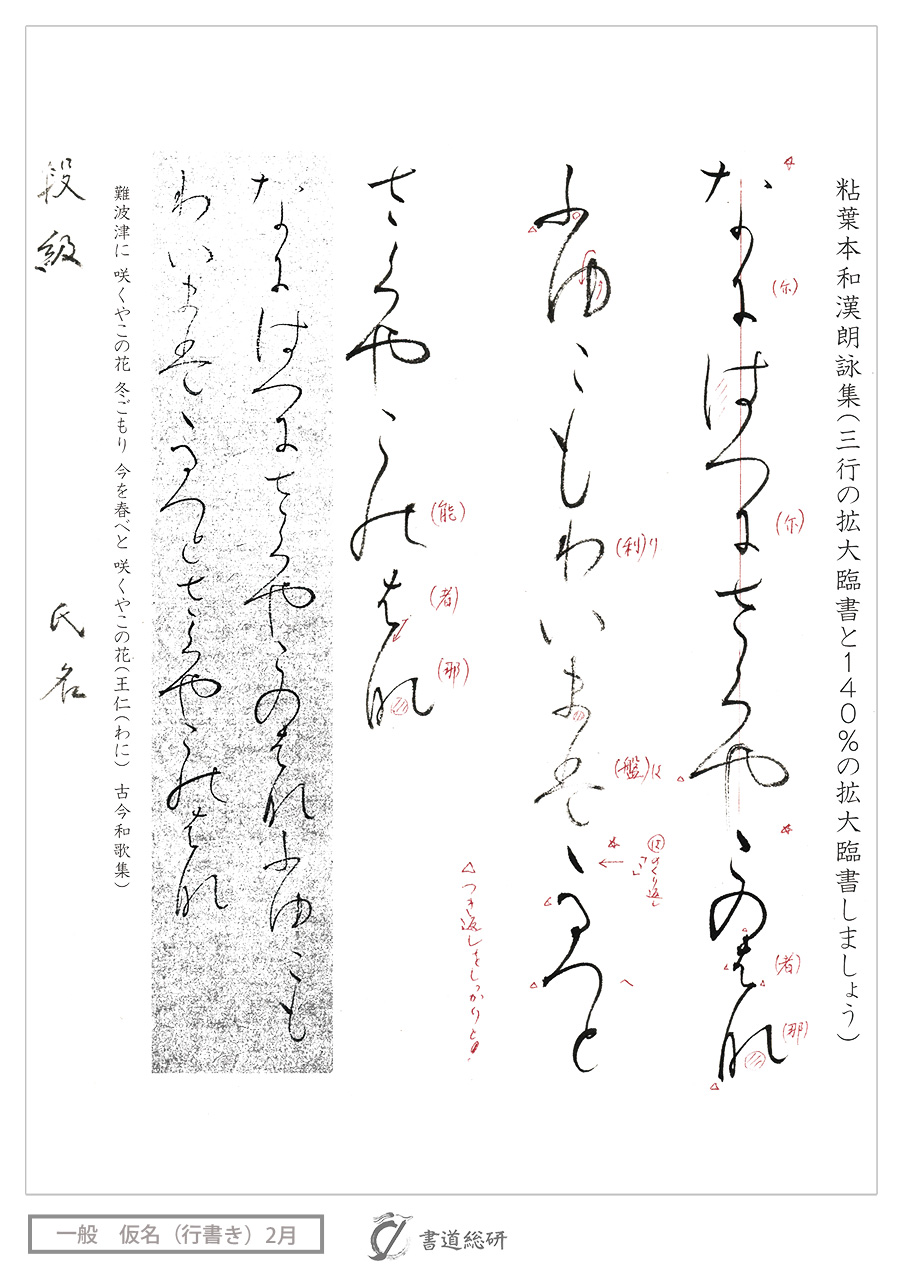 粘葉本和漢朗詠集(三行の拡大臨書と140%の拡大臨書しましょう)
な尓はつ尓さくやこの者那
(尓)
(尓)
(者)
(那)
ふゆこも利いま盤ゝるへと
(利)り
(盤)は
さくやこ能者那
(能)
(者)
(那)
△つき返しをしっかりと!
な尓はつ尓さくやこの者那ふゆこも
利いま盤ゝるへとさくやこ能者那
難波津に 咲くやこの花 冬ごもり 今を春べと 咲くやこの花(王仁(わに) 古今和歌集)
段級 氏名
一般 仮名(行書き)2月
書道総研